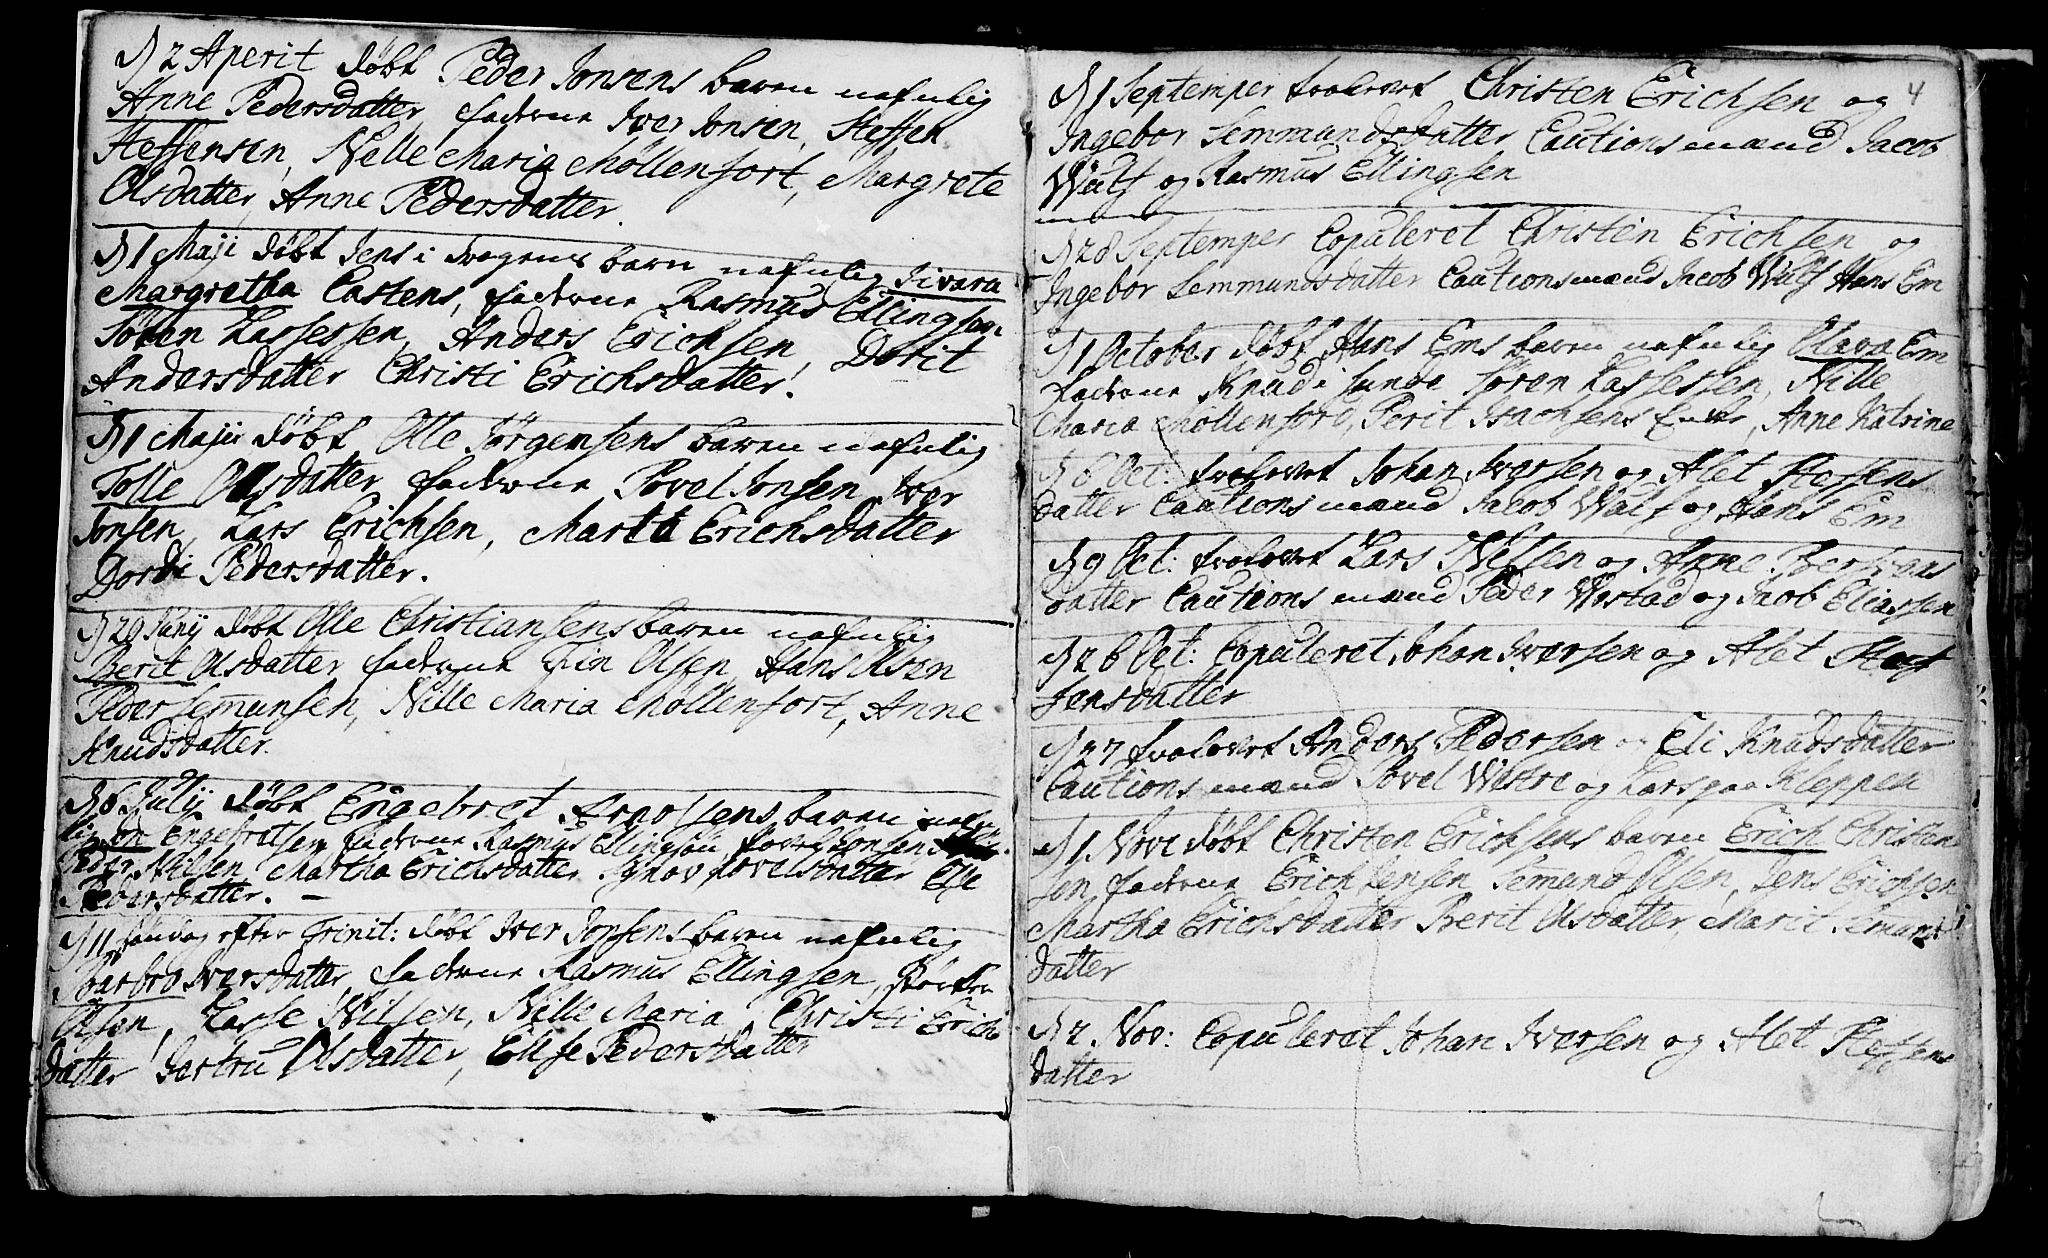 D 2 Aperit døbt Peder Jonsens baren nafnlig
Anne Pedersdatter, faderne Iver Jonsen, Steffen
Steffensen, Nelle Maria Møllenfort, Margrete
Olsdatter, Anne Pedersdatter.
D 1 Maji døbt Jens i barn nafnlig Sivara
Margretha Castens, faderne Rasmus Ellingsen
Søren Lassessen, Anders Erichsen, Dorit
Andersdatter Christi Erichsdatter.
D 1 Majii døbt Olle Jørgensens baren nafnlig
Tolle Olsdatter faderne Povel Jonsen Iver
Jonsen, Lars Erichsen, Martt Erichsdatter
Dordi Pedersdatter.
D 29 Junij døbt Olle Christiansens baren nafnlig
Berit Olsdatter, faderne Fin Olsen, Hans Olsøn
Peder Semunsen, Nille Maria Møllenfort, Anne
Knudsdatter.
D 6 Julij døbt Engebret baren nafn
lig Engebretsen faderne Rasmus Ellingsøn Povel Jonsen
Peder Nilsen, Martha Erichsdatter Synov Povelsdatter Else
Pedersdatter. –
D 11 søndag efter Trinit: døbt Iver Jonsens baren nafnlig
Barbro Iversdatter, faderne Rasmus Ellingsen,
Olsen, Lasse Nilsen, Nille Maria, Christi Erichs
datter, Gertru Olsdatter, Ellse Pedersdatter
4
D 1 Septemper trolovet Christen Erichsen og
Ingebor Semmundsdatter Cautions mænd Jacob
Wulf og Rasmus Ellingsen
D 28 Septemper Copuleret Christen Erichsen og
Ingebor Semmundsdatter Cautionsmænd Jacob Wulf Hans Em
D 1 October døbt Hans Ems baren nafnlig Olava Em
faderne Knud i Sunde Søren Lassessen, Nille
Maria Møllenford, Perit Isachsens Enke, Anne Katrine
D 8 Oct: trolovet Johan Iversen og Alet Steffens
datter Cautions mænd Jacob Wulf og Hans Em
D 9 Oct: trolovet Lars Nelsen og Anne
datter Cautions mænd Peder Wastad og Jacob Eliassen
D 26 Oct: Copuleret Johan Iversen og Alet Stef
fensdatter
D 27 trolovet Anders Pedersen og Eli Knudsdatter
Cautions mænd Povel Westre og Lars paa Kleppen
D 1. Nove døbt Christen Erichsens baren Erich Christen
sen faderne Erich Jensen Semund Olsen, Jens Erichsen
Martha Erichsdatter Berit Olsdatter, Marit Semund
datter
D 2. Nov: Copuleret Johan Iversen og Alet Steffens
datter